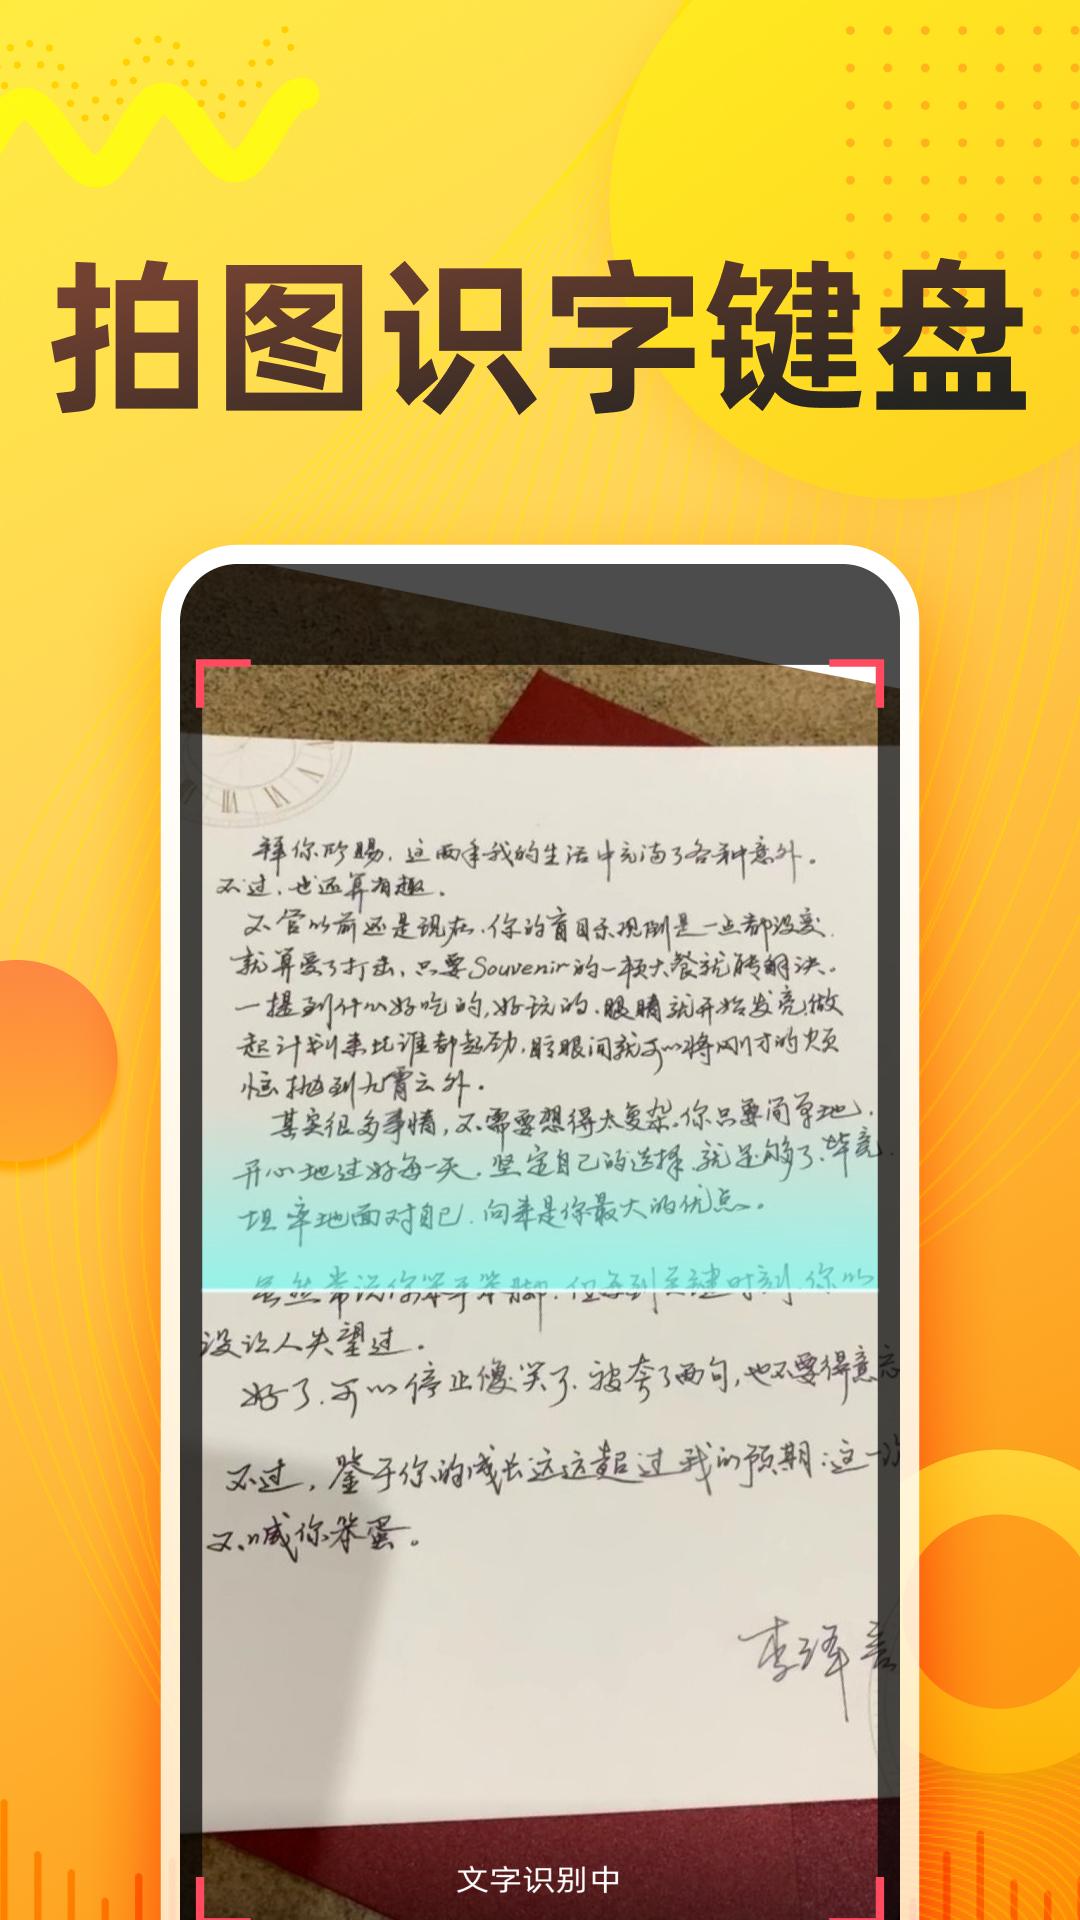 拍图识字键盘
拜你所赐，这两年我的生活中充满了各种意外。
不过，也还算有趣。
不管以前还是现在，你的盲目乐观倒是一点都没变，
就算受了打击，只要Souvenir的一顿大餐就能解决。
一提到什么好吃的，好玩的，眼睛就开始发亮，做
起计划来比谁都起劲，眨眼间就可以将刚才的烦
恼抛到九霄云外。
其实很多事情，不需要想得太复杂。你只要简单地，
开心地过好每一天，坚定自己的选择，就足够了，毕竟
坦率地面对自己，向来是你最大的优点。
虽然常说你笨手笨脚，但每到关键时刻，你从
没让人失望过。
好了，可以停止傻笑了，被夸了两句，也不要得意忘
不过，鉴于你的成长远远超过我的预期，这一次
不喊你笨蛋。
李泽言
文字识别中